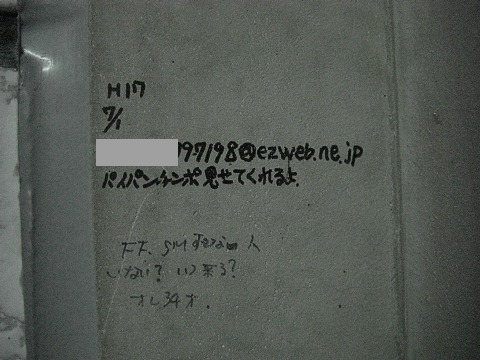 H17
7/1
197198@ezweb.ne.jp
パイパンチンポ見せてくれるよ.
FF、SMすきな 人
いない? いつ来る?
オレ34才.